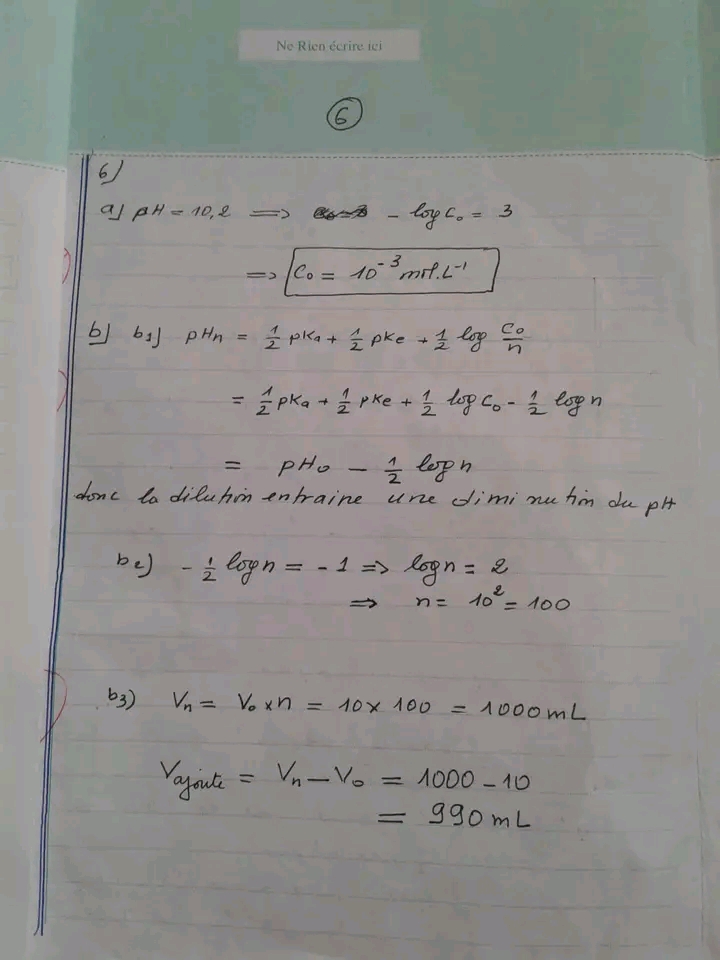 Ne Rien écrire ici
6
6)
a) pH = 10,2 ⟹ - log C₀ = 3
⟹ C₀ = 10⁻³ mol.L⁻¹
b) b₁) pHn = 1/2 pKa + 1/2 pKe + 1/2 log C₀/n
= 1/2 pKa + 1/2 pKe + 1/2 log C₀ - 1/2 log n
= pH₀ - 1/2 log n
donc la dilution entraine une diminution du pH
b₂) - 1/2 log n = - 1 ⟹ log n = 2
⟹ n = 10² = 100
b₃) Vn = V₀ × n = 10 × 100 = 1000 mL
Vajoute = Vn - V₀ = 1000 - 10
= 990 mL